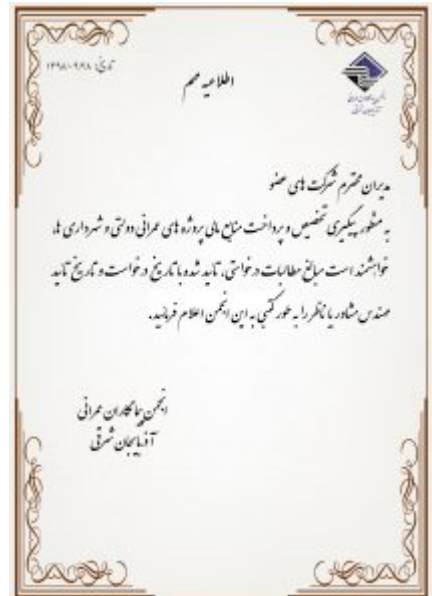 تاریخ: ۱۳۹۸/۰۹/۱۸
اطلاعیه مهم
انجمن پیمانکاران عمرانی
آذربایجان شرقی
مدیران محترم شرکت های عضو
به منظور پیگیری تخصیص و پرداخت منابع مالی پروژه های عمرانی دولتی و شهرداری ها
خواهشمند است مبالغ مطالبات درخواستی، تایید شده با تاریخ درخواست و تاریخ تایید
مهندس مشاور یا ناظر را به طور کتبی به این انجمن اعلام فرمایید.
انجمن پیمانکاران عمرانی
آذربایجان شرقی